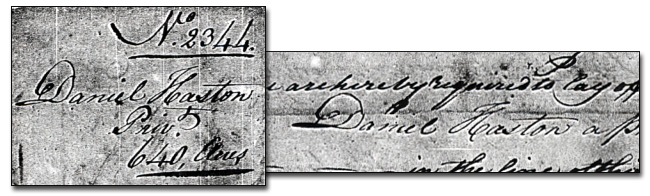 No. 2344.
Daniel Haston
Privt.
640 Acres
are hereby required to lay off
Daniel Haston a Pr
in the line of this